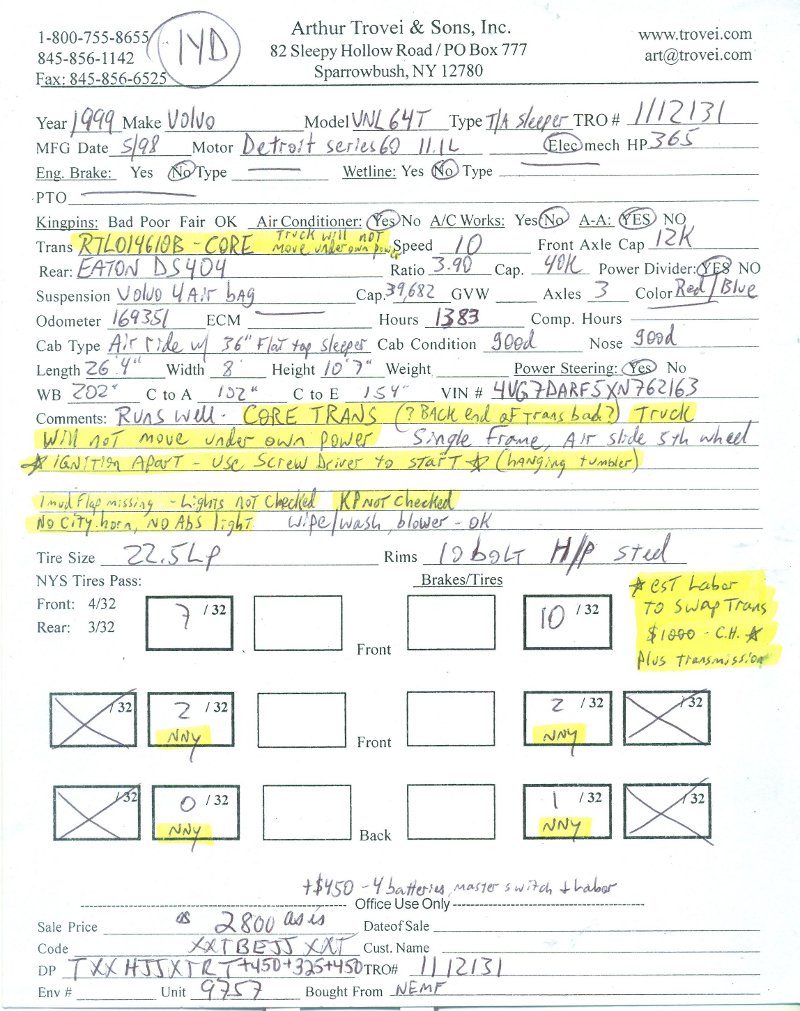 Arthur Trovei & Sons, Inc.
82 Sleepy Hollow Road / PO Box 777
Sparrowbush, NY 12780
1-800-755-8655
845-856-1142
Fax: 845-856-6525
14D
www.trovei.com
art@trovei.com
Year 1999 Make Volvo Model VNL64T Type T/A Sleeper TRO # 1112131
MFG Date 5/98 Motor Detroit series 60 11.1L Elec mech HP 365
Eng. Brake: Yes No Type Wetline: Yes No Type
PTO
Kingpins: Bad Poor Fair OK Air Conditioner: Yes No A/C Works: Yes No A-A: YES NO
Trans RTLO14610B - CORE Truck will not move under own power Speed 10 Front Axle Cap 12K
Rear: EATON DS404 Ratio 3.90 Cap. 40K Power Divider: YES NO
Suspension Volvo 4 Air bag Cap. 39,682 GVW Axles 3 Color Red/Blue
Odometer 169351 ECM Hours 1383 Comp. Hours
Cab Type Air ride w/ 36" Flat top sleeper Cab Condition good Nose good
Length 26'4" Width 8' Height 10'7" Weight Power Steering: Yes No
WB 202" C to A 132" C to E 154" VIN # 4VG7DARF5XN762163
Comments: Runs well - CORE TRANS (? Back end of trans bad?) Truck
Will not move under own power Single Frame, Air slide 5th wheel
* IGNITION APART - Use Screw Driver to start * (hanging tumbler)
1 mud flap missing - Lights not Checked KP not Checked
No City horn, NO Abs light Wipe/wash, blower - OK
Tire Size 22.5 LP Rims 10 bolt H/P steel
NYS Tires Pass: Brakes/Tires
Front: 4/32
Rear: 3/32
7 /32 Front 10 /32
* est Labor
to swap Trans
$1000 - C.H. *
Plus transmission
/32 2 /32 NNY Front 2 /32 NNY /32
/32 0 /32 NNY Back 1 /32 NNY /32
+$450 - 4 batteries, master switch + Labor
Office Use Only
Sale Price 2800 as is Date of Sale
Code XXTBEJJ XXT Cust. Name
DP TXXHJJXTRT +450+325+450 TRO# 1112131
Env # Unit 9757 Bought From NEMF